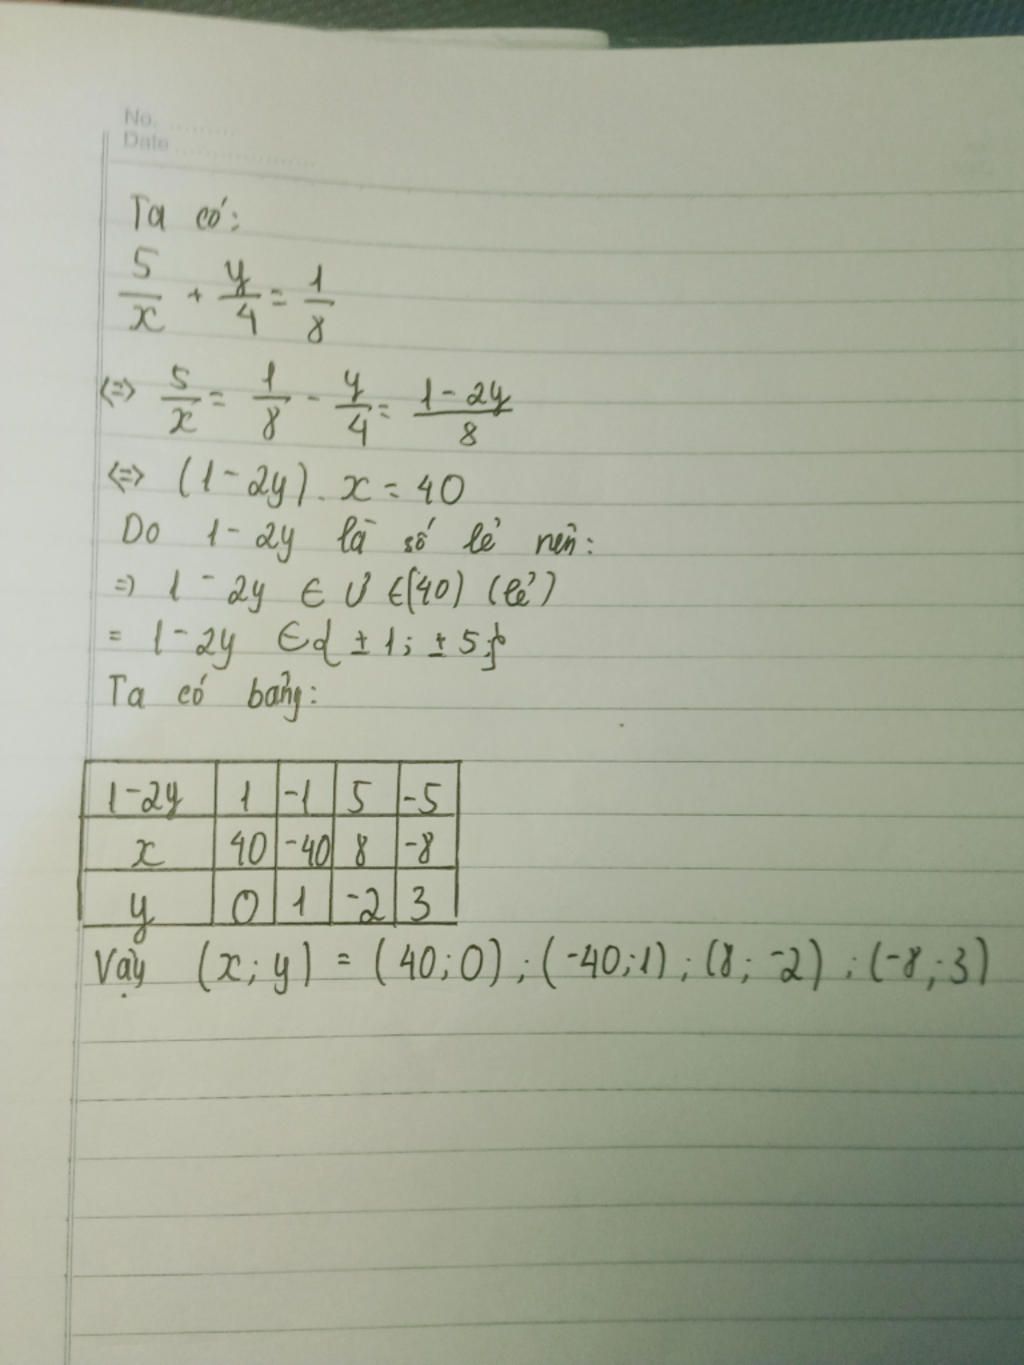 No. ..........
Date ....................
Ta có:
5/x + y/4 = 1/8
<=> 5/x = 1/8 - y/4 = (1-2y)/8
<=> (1-2y). x = 40
Do 1-2y là số lẻ nên:
=> 1-2y ∈ Ư ∈(40) (lẻ)
= 1-2y ∈{±1; ±5;}
Ta có bảng:
1-2y 1 -1 5 -5
x 40 -40 8 -8
y 0 1 -2 3
Vậy (x; y) = (40; 0) ; (-40; 1) ; (8; -2) ; (-8; 3)